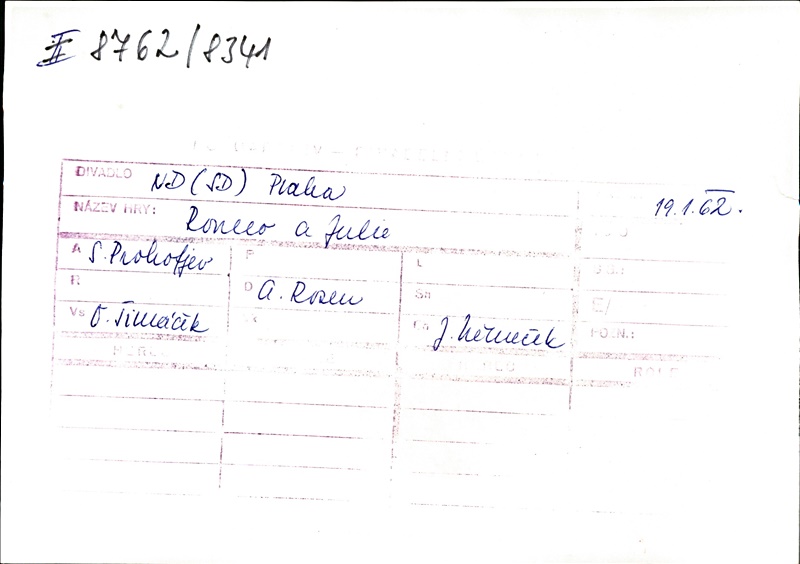 II 8762/8341
DIVADLO ND (SD) Praha 19.1.62.
NÁZEV HRY: Romeo a Julie
A S. Prokofjev P L
R D A. Rosen Sn
Vs O. Šimáček J. Němeček PO.N.:
ROLE